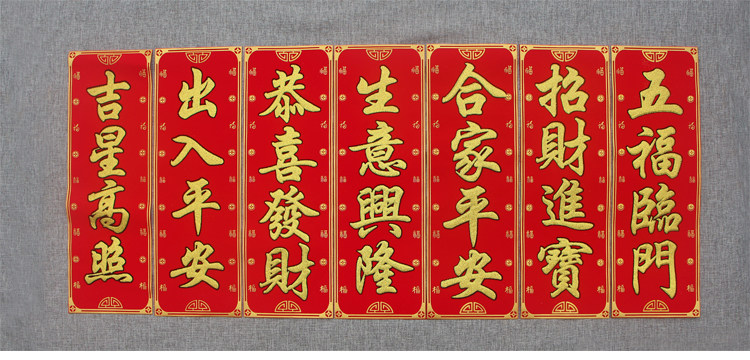 五福臨門
招財進寶
合家平安
生意興隆
恭喜發財
出入平安
吉星高照